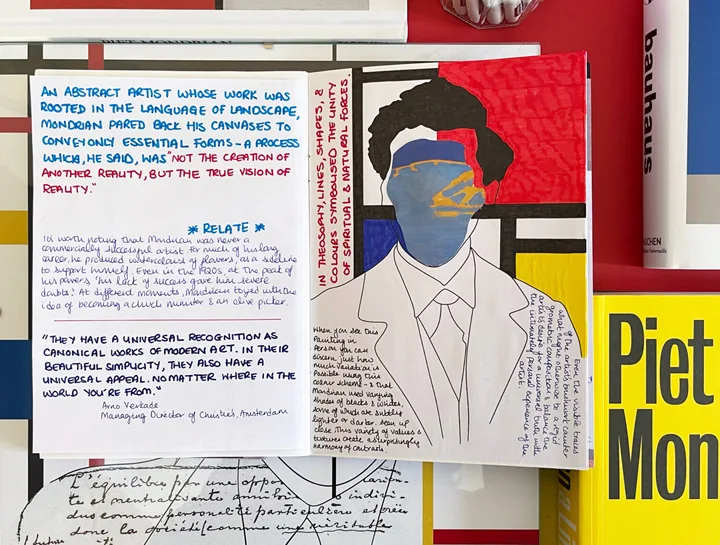 PIET MONDRIAN
AN ABSTRACT ARTIST WHOSE WORK WAS
ROOTED IN THE LANGUAGE OF LANDSCAPE,
MONDRIAN PARED BACK HIS CANVASES TO
CONVEY ONLY ESSENTIAL FORMS - A PROCESS
WHICH, HE SAID, WAS "NOT THE CREATION OF
ANOTHER REALITY, BUT THE TRUE VISION OF
REALITY."
* RELATE *
It's worth noting that Mondrian was never a
commercially successful artist. For much of his long
career, he produced watercolours of flowers, as a sideline
to support himself. Even in the 1920s, at the peak of
his powers 'his lack of success gave him severe
doubts.' At different moments, Mondrian toyed with the
idea of becoming a church minister & an olive picker.
"THEY HAVE A UNIVERSAL RECOGNITION AS
CANONICAL WORKS OF MODERN ART. IN THEIR
BEAUTIFUL SIMPLICITY, THEY ALSO HAVE A
UNIVERSAL APPEAL. NO MATTER WHERE IN THE
WORLD YOU'RE FROM."
Arno Verkade
Managing Director of Christie's, Amsterdam
IN THEOSOPHY, LINES, SHAPES, &
COLOURS SYMBOLISED THE UNITY
OF SPIRITUAL & NATURAL FORCES.
When you see this
Painting in
Person you can
discern just how
much variation is
Possible using this
colour scheme - & that
Mondrian used varying
shades of blacks & whites,
some of which are subtly
lighter or darker. Seen up
close, this variety of values &
textures create a surprisingly
harmony of contrasts.
Even the visible traces
of the artist's brushwork counter
what might otherwise be a rigid
geometric composition & balance the
artist's desire for a universal truth with
the intimately personal experience of the
artist.
bauhaus
TASCHEN
Piet
Mon
L'équilibre par une oppo
te et neutralisante annihi
dus comme personalité particulière et crée
donc la société comme une véritable